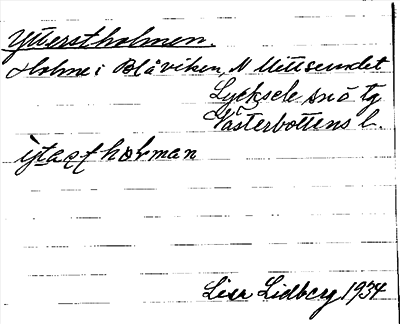 Ytterstholmen.
Holme i Blåviken, N Mittisundet
Lycksele snö tg
Västerbottens l.
ỳtaʂtholman
Lisa Lidberg 1934